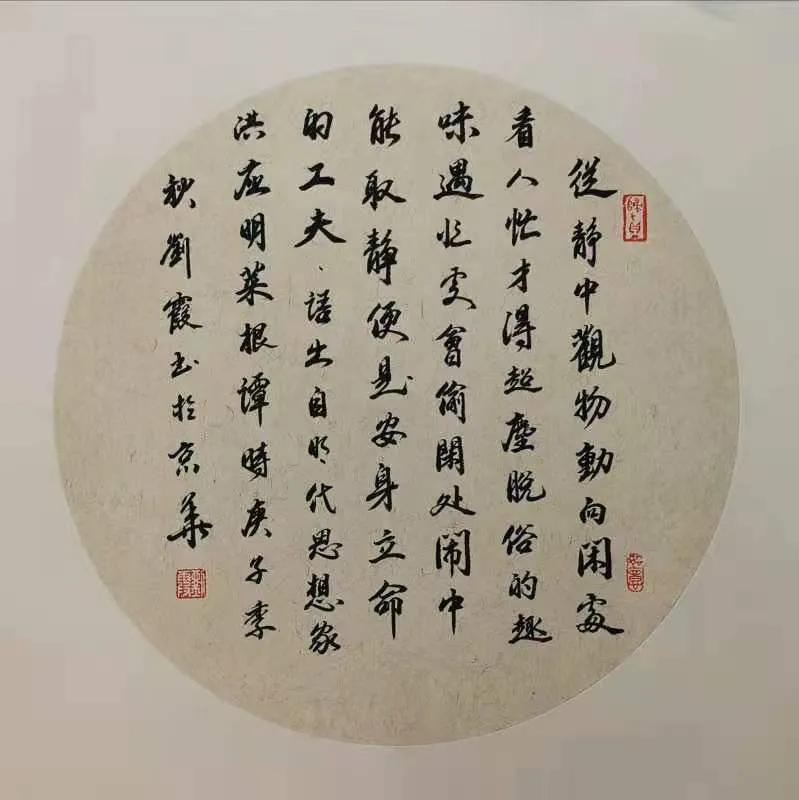 從静中觀物動向闲處
看人忙才得超塵脱俗的趣
味遇忙处會偷閑处闹中
能取静便是安身立命
的工夫、語出自明代思想家
洪应明菜根譚時庚子季
秋劉霞书於京華